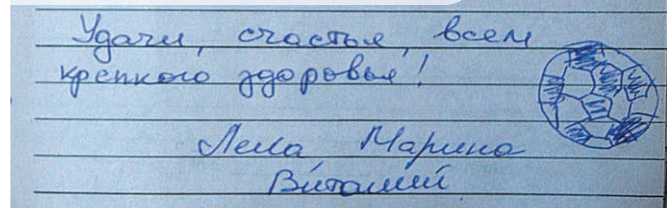 Удачи, счастья, всем
крепкого здоровья!
Лела, Марина
Виталий